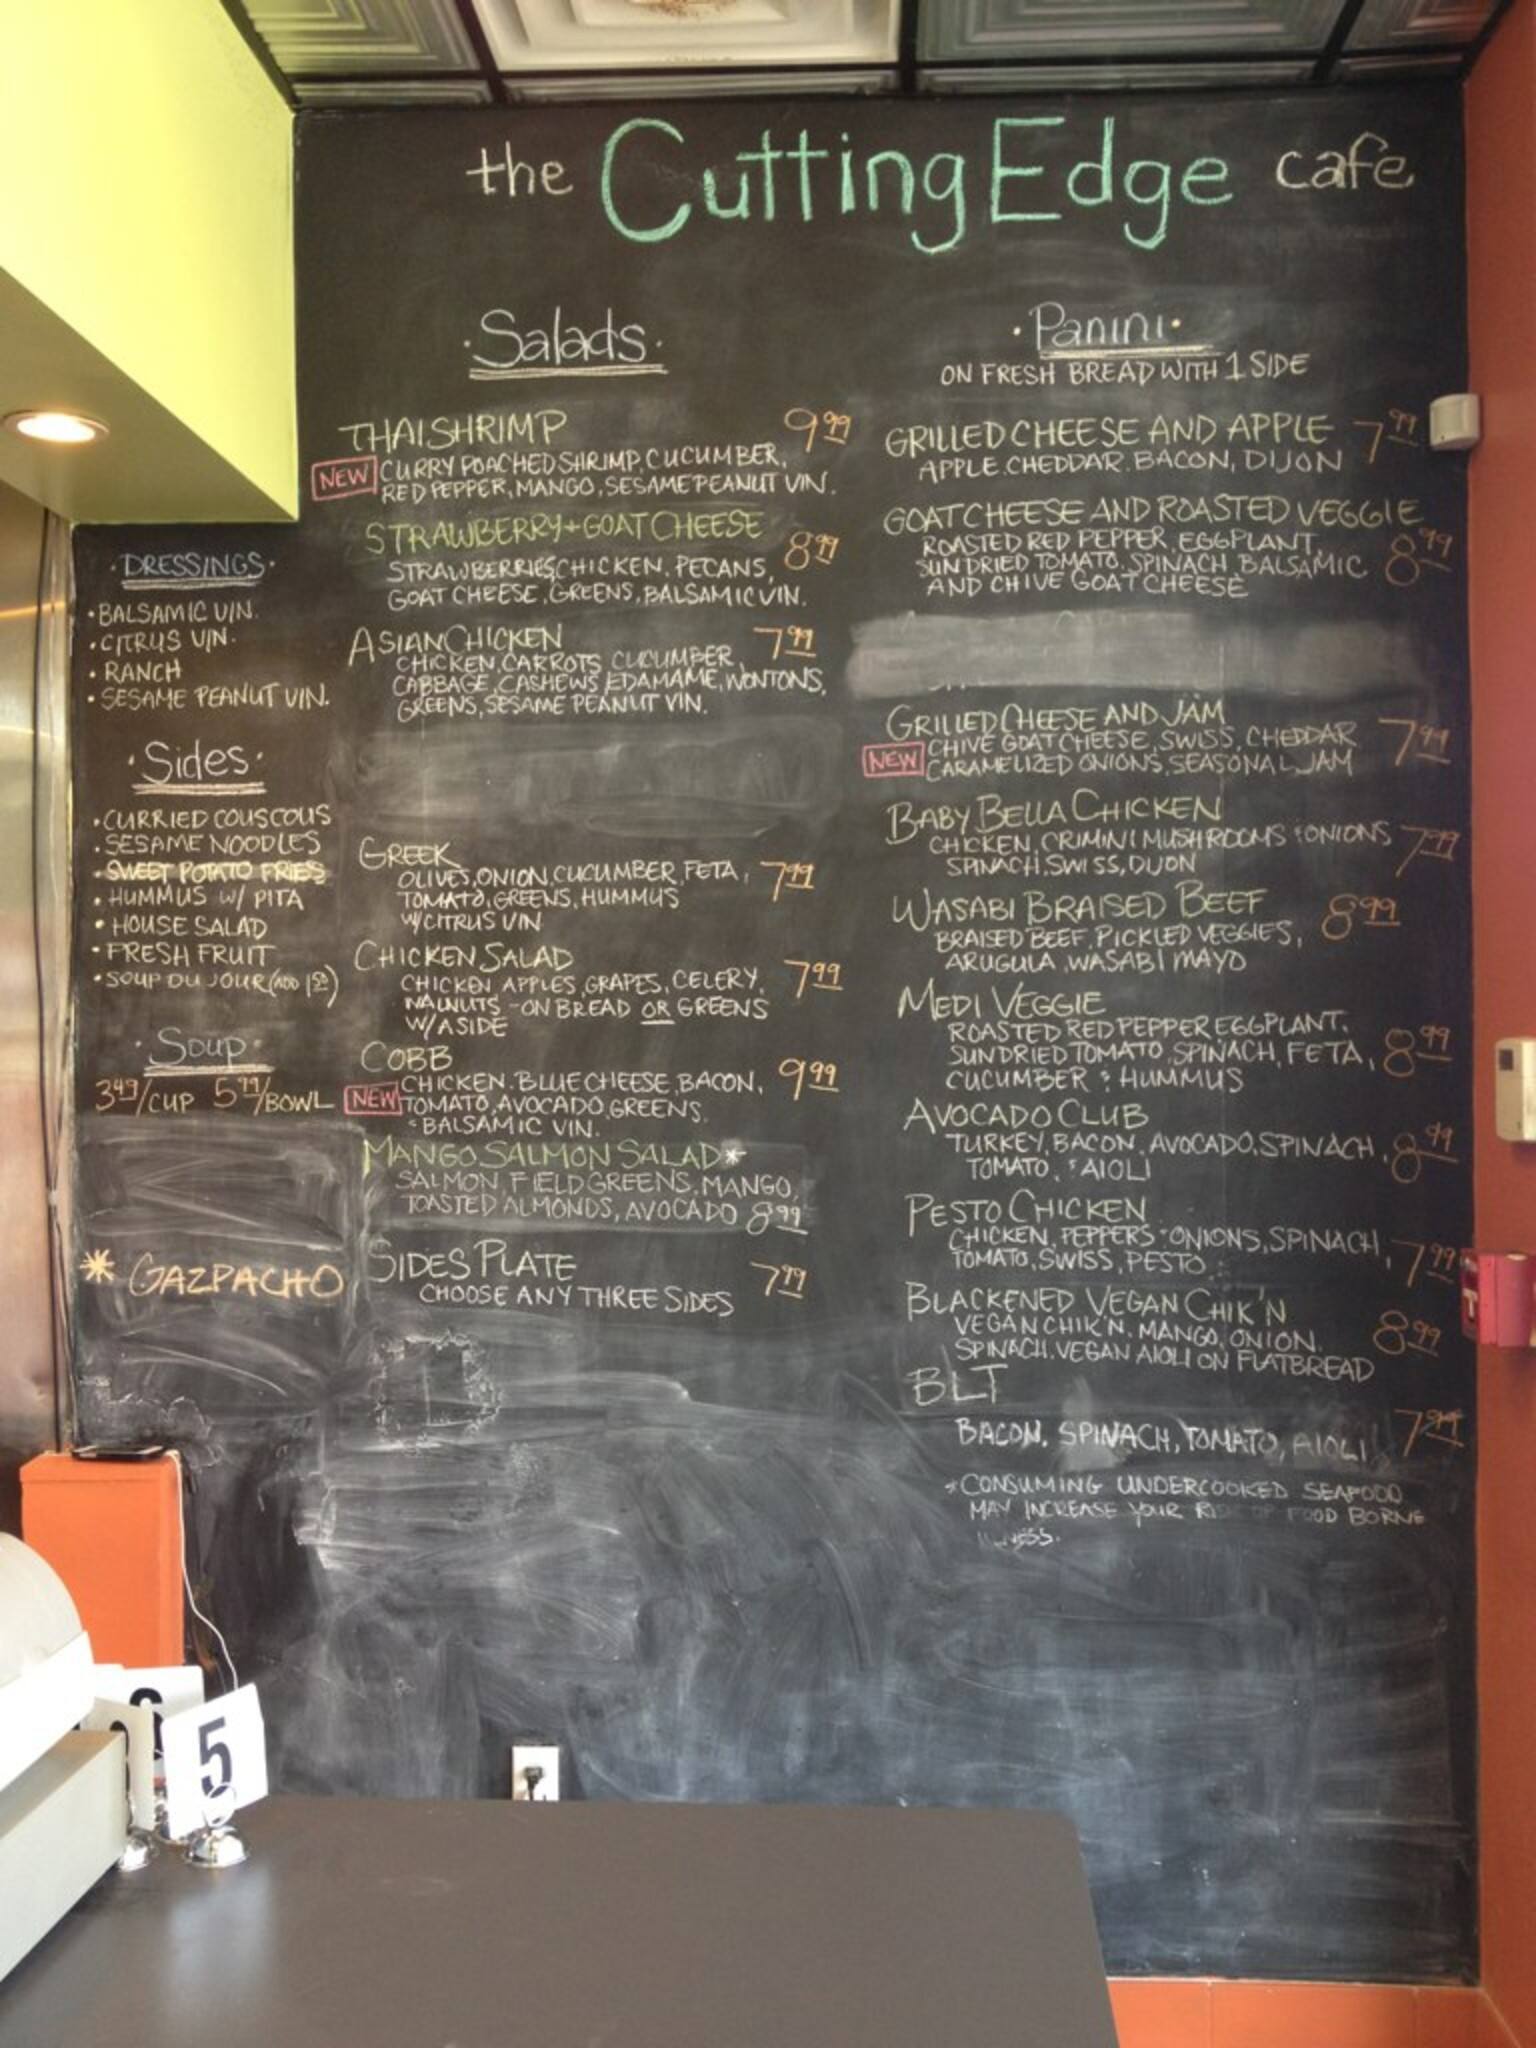 the Cutting Edge cafe
DRESSINGS
• BALSAMIC VIN.
• CITRUS VIN.
• RANCH
• SESAME PEANUT VIN.
Sides
• CURRIED COUSCOUS
• SESAME NOODLES
• SWEET POTATO FRIES
• HUMMUS W/ PITA
• HOUSE SALAD
• FRESH FRUIT
• SOUP DU JOUR (ADD 1 50)
Soup
3 49/CUP 5 99/BOWL
* GAZPACHO
Salads
THAI SHRIMP 9 99
NEW CURRY POACHED SHRIMP, CUCUMBER,
RED PEPPER, MANGO, SESAME PEANUT VIN.
STRAWBERRY + GOAT CHEESE 8 99
STRAWBERRIES, CHICKEN, PECANS,
GOAT CHEESE, GREENS, BALSAMIC VIN.
ASIAN CHICKEN 7 99
CHICKEN, CARROTS, CUCUMBER,
CABBAGE, CASHEWS, EDAMAME, WONTONS,
GREENS, SESAME PEANUT VIN.
GREEK
OLIVES, ONION, CUCUMBER, FETA, 7 99
TOMATO, GREENS, HUMMUS
W/CITRUS VIN
CHICKEN SALAD
CHICKEN APPLES, GRAPES, CELERY, 7 99
WALNUTS - ON BREAD OR GREENS
W/A SIDE
COBB
CHICKEN, BLUE CHEESE, BACON, 9 99
NEW TOMATO, AVOCADO, GREENS,
& BALSAMIC VIN.
MANGO SALMON SALAD*
SALMON, FIELD GREENS, MANGO,
TOASTED ALMONDS, AVOCADO 8 99
SIDES PLATE 7 99
CHOOSE ANY THREE SIDES
• Panini •
ON FRESH BREAD WITH 1 SIDE
GRILLED CHEESE AND APPLE 7 99
APPLE, CHEDDAR, BACON, DIJON
GOAT CHEESE AND ROASTED VEGGIE
ROASTED RED PEPPER, EGGPLANT, 8 99
SUNDRIED TOMATO, SPINACH, BALSAMIC
AND CHIVE GOAT CHEESE
GRILLED CHEESE AND JAM 7 99
NEW CHIVE GOAT CHEESE, SWISS, CHEDDAR
CARAMELIZED ONIONS, SEASONAL JAM
BABY BELLA CHICKEN
CHICKEN, CRIMINI MUSHROOMS & ONIONS 7 99
SPINACH, SWISS, DIJON
WASABI BRAISED BEEF 8 99
BRAISED BEEF, PICKLED VEGGIES,
ARUGULA, WASABI MAYO
MEDI VEGGIE
ROASTED RED PEPPER EGGPLANT,
SUNDRIED TOMATO, SPINACH, FETA, 8 99
CUCUMBER & HUMMUS
AVOCADO CLUB
TURKEY, BACON, AVOCADO, SPINACH, 8 99
TOMATO, & AIOLI
PESTO CHICKEN
CHICKEN, PEPPERS - ONIONS, SPINACH,
TOMATO, SWISS, PESTO 7 99
BLACKENED VEGAN CHIK'N
VEGAN CHIK'N, MANGO, ONION, 8 99
SPINACH, VEGAN AIOLI ON FLATBREAD
BLT
BACON, SPINACH, TOMATO, AIOLI 7 99
* CONSUMING UNDERCOOKED SEAFOOD
MAY INCREASE YOUR RISK OF FOOD BORNE
ILLNESS.
5